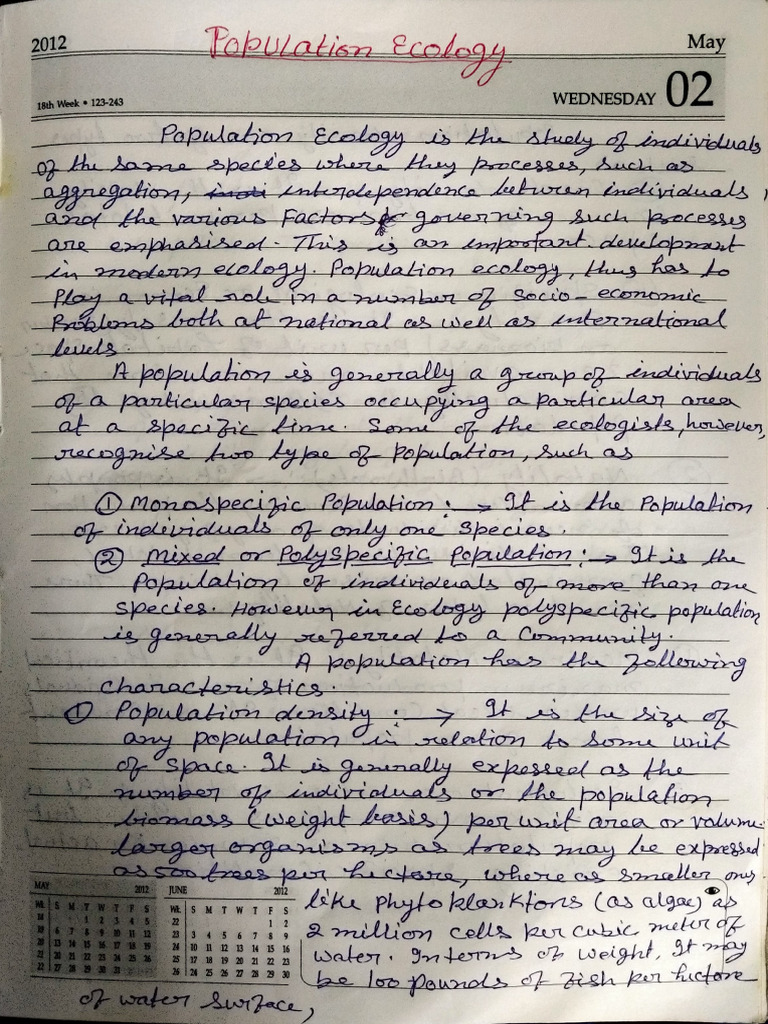 2012 Population Ecology May
18th Week • 123-243 WEDNESDAY 02
Population Ecology is the study of individuals
of the same species where they processes, such as
aggregation, interdependence between individuals,
and the various Factors governing such processes
are emphasised. This is an important development
in modern ecology. Population ecology, thus has to
Play a vital role in a number of socio-economic
Problems both at national as well as international
levels.
A population is generally a group of individuals
of a particular species occupying a particular area
at a specific time. Some of the ecologists, however,
recognise two type of population, such as
① Monospecific Population :→ It is the Population
of individuals of only one species.
② Mixed or Polyspecific Population :→ It is the
Population of individuals of more than one
species. However in Ecology polyspecific population
is generally referred to a Community.
A population has the following
characteristics.
① Population density :→ It is the size of
any population in relation to some unit
of space. It is generally expessed as the
number of individuals or the population
biomass (weight basis) per unit area or volume.
larger organisms as trees may be expressed
as 500 trees per hectare, where as smaller ones
like phytoplanktons (as algae) as
2 million cells per cubic meter of
water. Interms of weight, It may
be 100 pounds of fish per hectare
of water surface,
MAY 2012
Wk S M T W T F S
18 1 2 3 4 5
19 6 7 8 9 10 11 12
20 13 14 15 16 17 18 19
21 20 21 22 23 24 25 26
22 27 28 29 30 31
JUNE 2012
Wk S M T W T F S
22 1 2
23 3 4 5 6 7 8 9
24 10 11 12 13 14 15 16
25 17 18 19 20 21 22 23
26 24 25 26 27 28 29 30